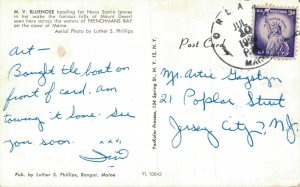 M. V. BLUENOSE heading for Nova Scotia leaves
in her wake the famous hills of Mount Desert
seen here across the waters of FRENCHMANS BAY
on the coast of Maine.
Aerial Photo by Luther S. Phillips
Art—
Bought the boat on
front of card. Am
towing it home. See
you soon.
x x x
Pub. by Luther S. Phillips, Bangor, Maine
YL 10043
Post Card
Mr. Artie
21 Poplar Street
Jersey City 7, N.J.